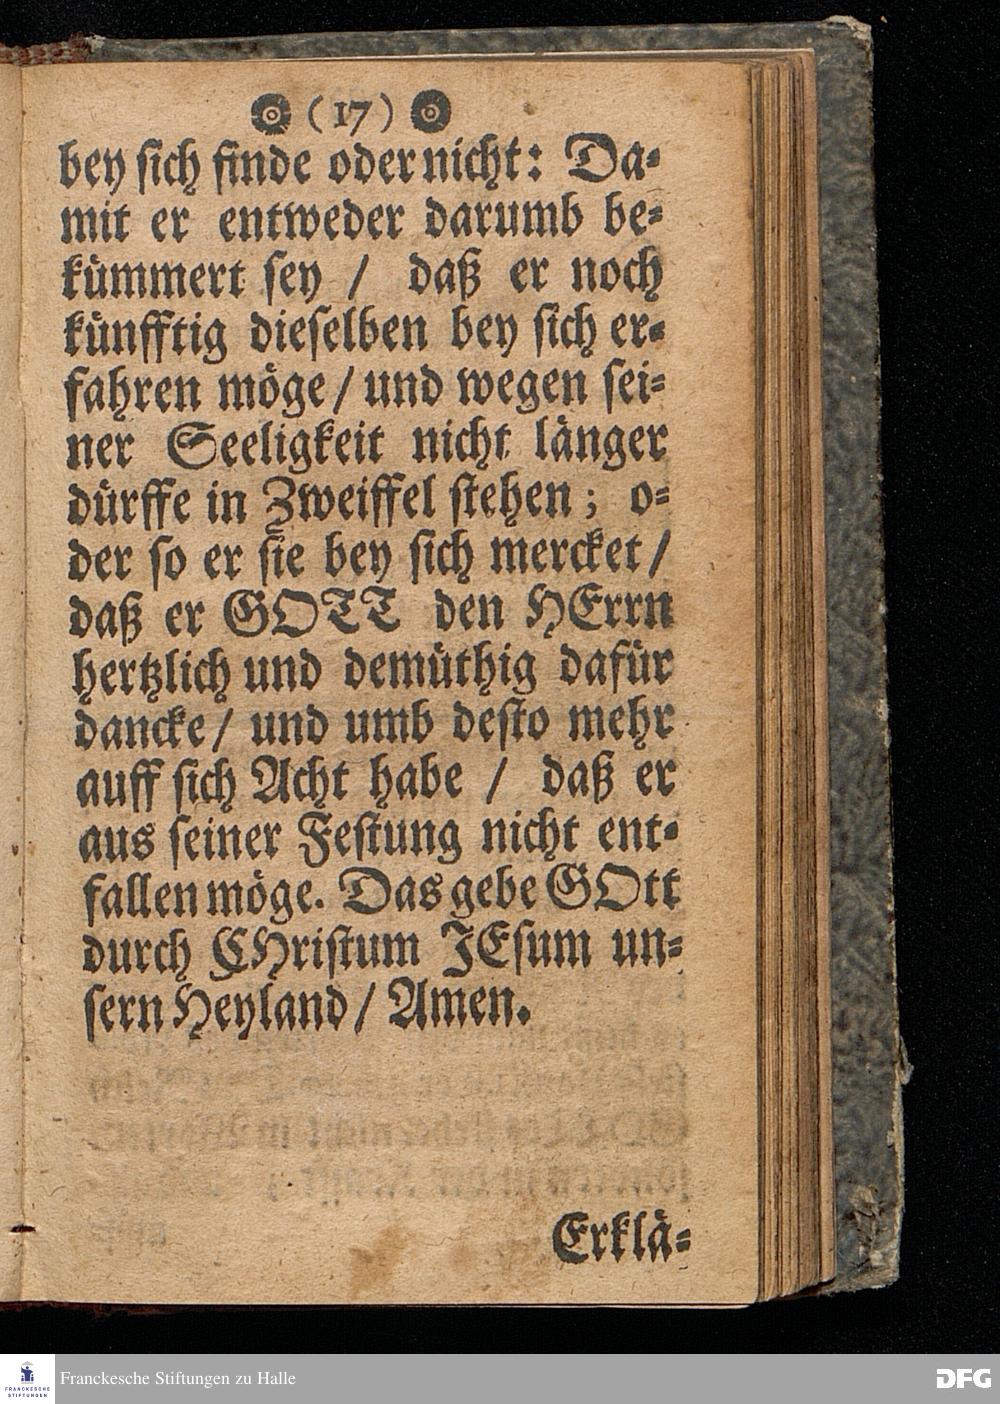 (17)
bey sich finde oder nicht: Da-
mit er entweder darumb be-
kümmert sey / daß er noch
künfftig dieselben bey sich er-
fahren möge / und wegen sei-
ner Seeligkeit nicht länger
dürffe in Zweiffel stehen; o-
der so er sie bey sich mercket /
daß er GOTT den HErrn
hertzlich und demüthig dafür
dancke / und umb desto mehr
auff sich Acht habe / daß er
aus seiner Festung nicht ent-
fallen möge. Das gebe GOtt
durch CHristum JEsum un-
sern Heyland / Amen.
Erklä-
FRANCKESCHE
STIFTUNGEN
Franckesche Stiftungen zu Halle
DFG